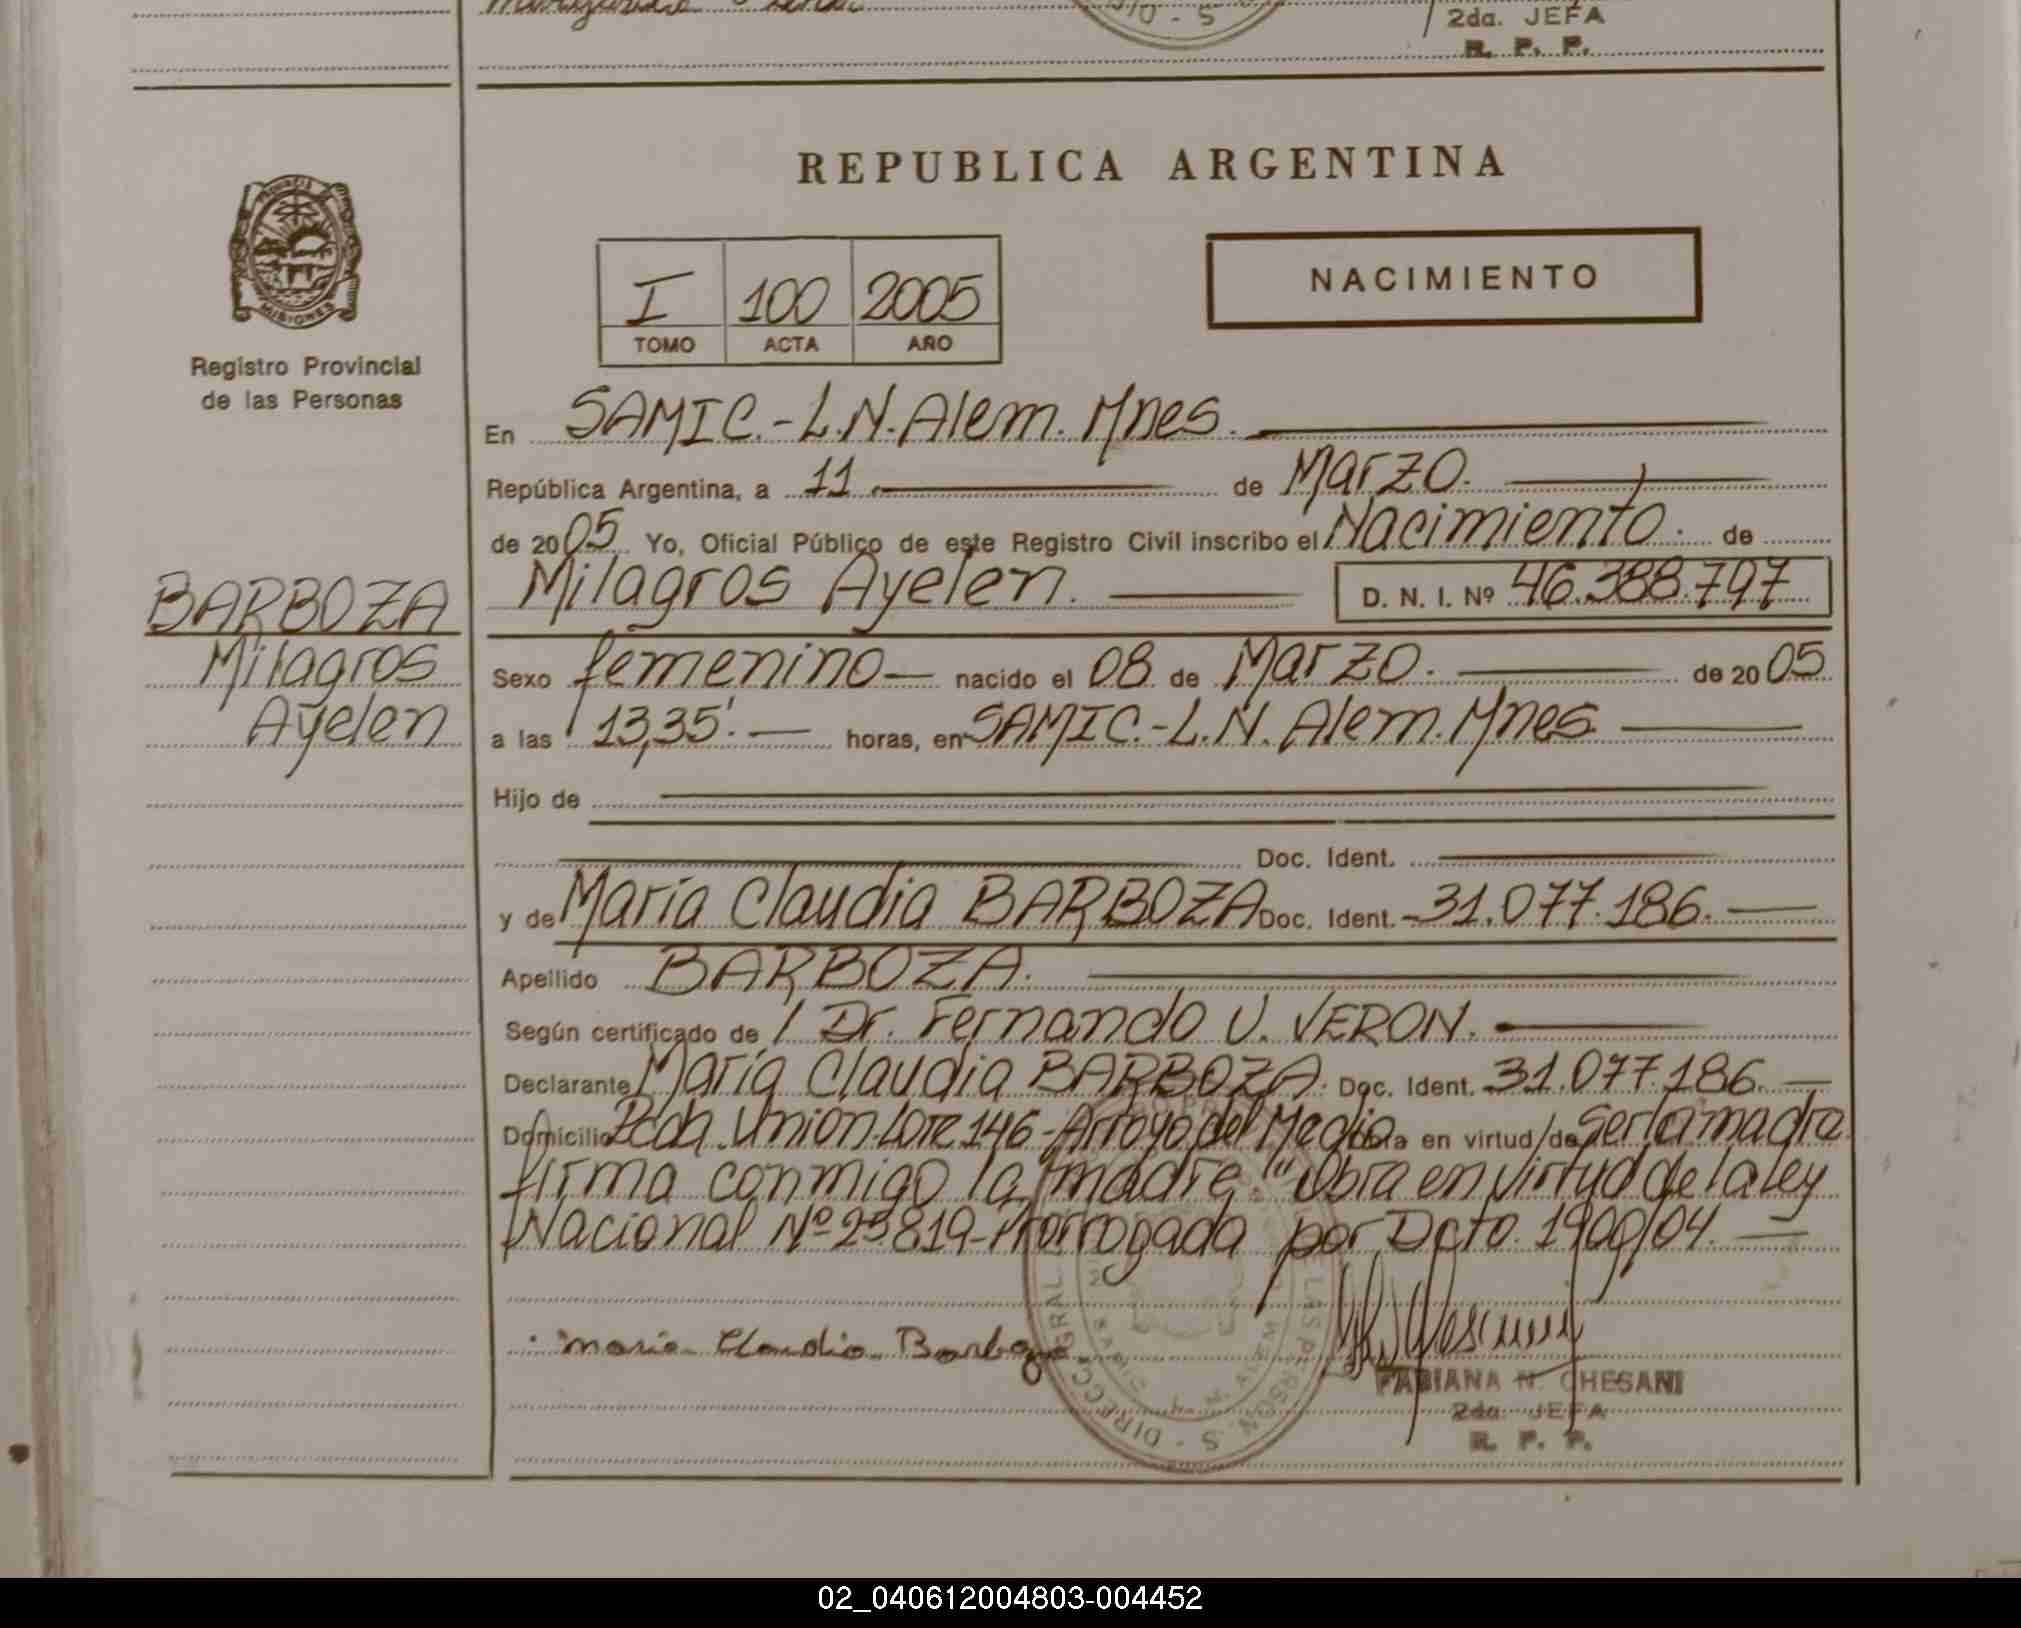 2da. JEFA
R. P. P.
REPUBLICA ARGENTINA
MISIONES
Registro Provincial
de las Personas
I 100 2005
TOMO ACTA AÑO
NACIMIENTO
En SAMIC.-L.N.Alem. Mnes.
República Argentina, a 11 de Marzo.
de 2005 Yo, Oficial Público de este Registro Civil inscribo el Nacimiento. de
Milagros Ayelen. D. N. I. Nº 46.388.797
BARBOZA
Milagros
Ayelen
Sexo femenino nacido el 08 de Marzo. de 2005
a las 13,35'. horas, en SAMIC.-L.N. Alem. Mnes
Hijo de
Doc. Ident.
y de María Claudia BARBOZA Doc. Ident. 31.077.186.
Apellido BARBOZA.
Según certificado de Dr. Fernando U. VERON.
Declarante María Claudia BARBOZA. Doc. Ident. 31.077.186.
Domicilio Pcdn. Union-Lote 146-Arroyo del Medio Obra en virtud de ser la madre
firma conmigo la madre "Obra en virtud de la ley
Nacional Nº 25819-Prorrogada por Dcto. 1900/04.
María Claudia Barboza
FABIANA N. CHESANI
2da. JEFA
R. P. P.
02_040612004803-004452